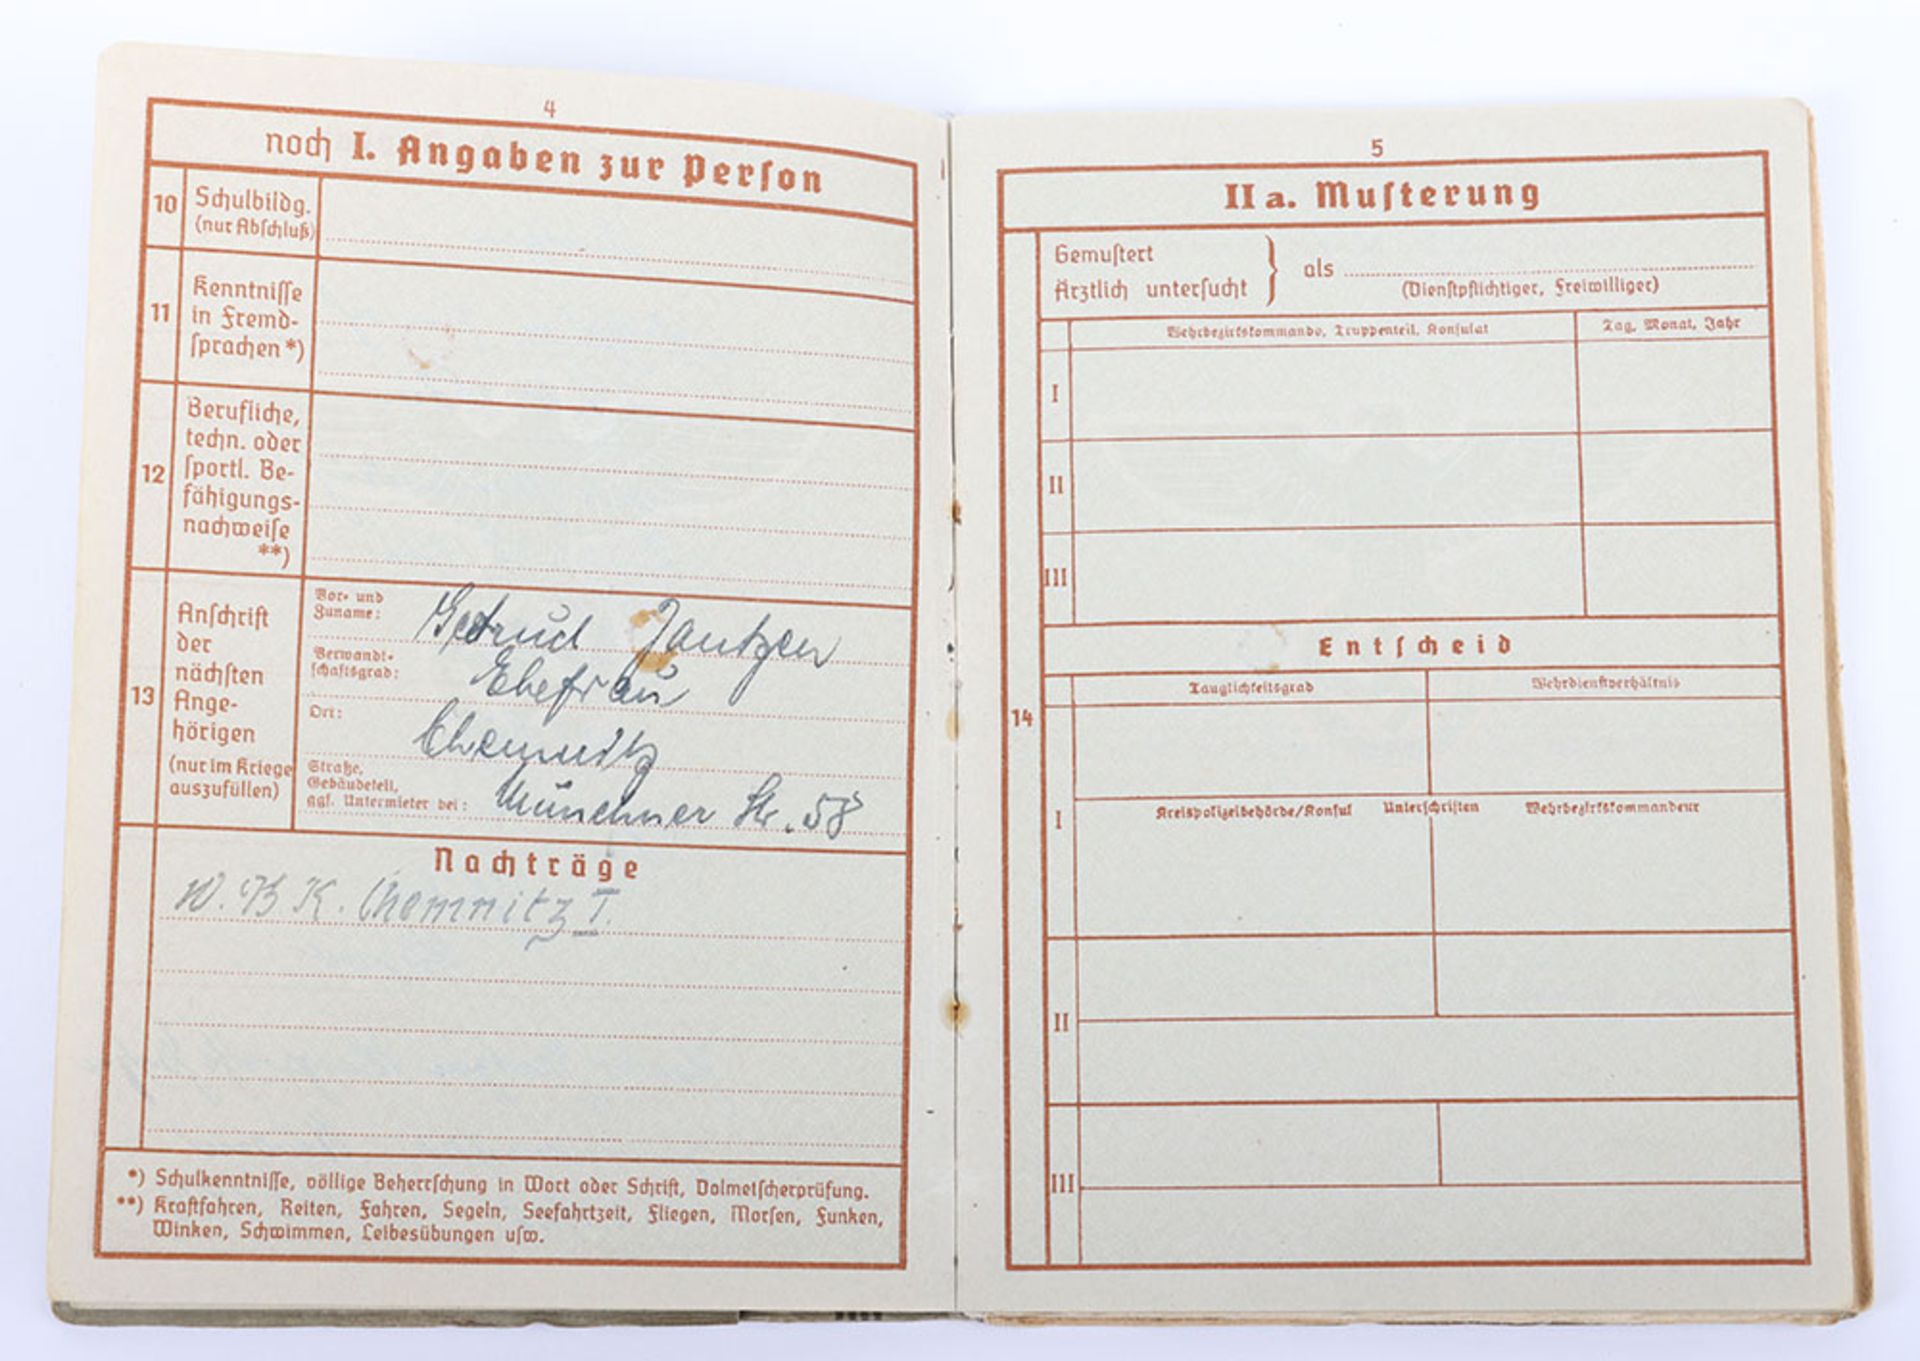 4
noch I. Angaben zur Perſon
10
Schulbildg.
(nur Abſchluß)
11
Kenntniſſe
in Fremd-
ſprachen *)
12
Berufliche,
techn. oder
ſportl. Be-
fähigungs-
nachweiſe
**)
13
Anſchrift
der
nächſten
Ange-
hörigen
(nur im Kriege
auszufüllen)
Vor- und
Zuname:
Gertrud Jantzen
Verwandt-
ſchaftsgrad:
Ehefrau
Ort:
Chemnitz
Straße,
Gebäudeteil,
ggf. Untermieter bei:
Münchner Str. 58
Nachträge
W. B K. Chemnitz I.
*) Schulkenntniſſe, völlige Beherrſchung in Wort oder Schrift, Dolmetſcherprüfung.
**) Kraftfahren, Reiten, Fahren, Segeln, Seefahrtzeit, Fliegen, Morſen, Funken,
Winken, Schwimmen, Leibesübungen uſw.
5
II a. Muſterung
Gemuſtert
Ärztlich unterſucht } als
(Dienſtpflichtiger, Freiwilliger)
Wehrbezirkskommando, Truppenteil, Konſulat
Tag, Monat, Jahr
I
II
III
Entſcheid
14
Tauglichkeitsgrad
Wehrdienſtverhältnis
I
Kreispolizeibehörde/Konſul Unterſchriften Wehrbezirkskommandeur
II
III